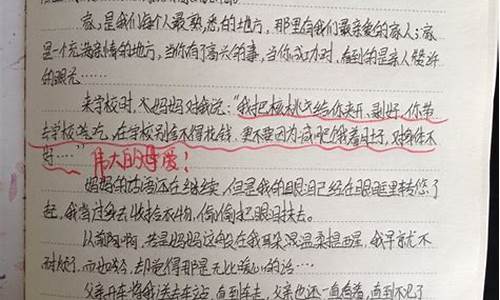 家,是我们每个人最熟悉的地方,那里有我们最亲爱的家人;家
是一个充满亲情的地方,当你有了高兴的事,当你成功时,看到的是亲人赞许
的眼光……
来学校时,妈妈对我说:“我把核桃给你夹开,剥好,你带
去学校吃,在学校别舍不得花钱,更不要因为减肥饿着肚子,对身体不
好…”伟大的母爱!
妈妈的话还在继续,但是我的眼泪已经在眼眶里转悠了
起,我背过身去收拾衣物,偷偷把眼泪抹去。
以前啊,若是妈妈这般在我耳朵温柔提醒,我早就不
耐烦了,而如今,却觉得那是无比暖心的话……
父亲开车将我送去车站,直到车走,父亲也还一直看着,直到不见了